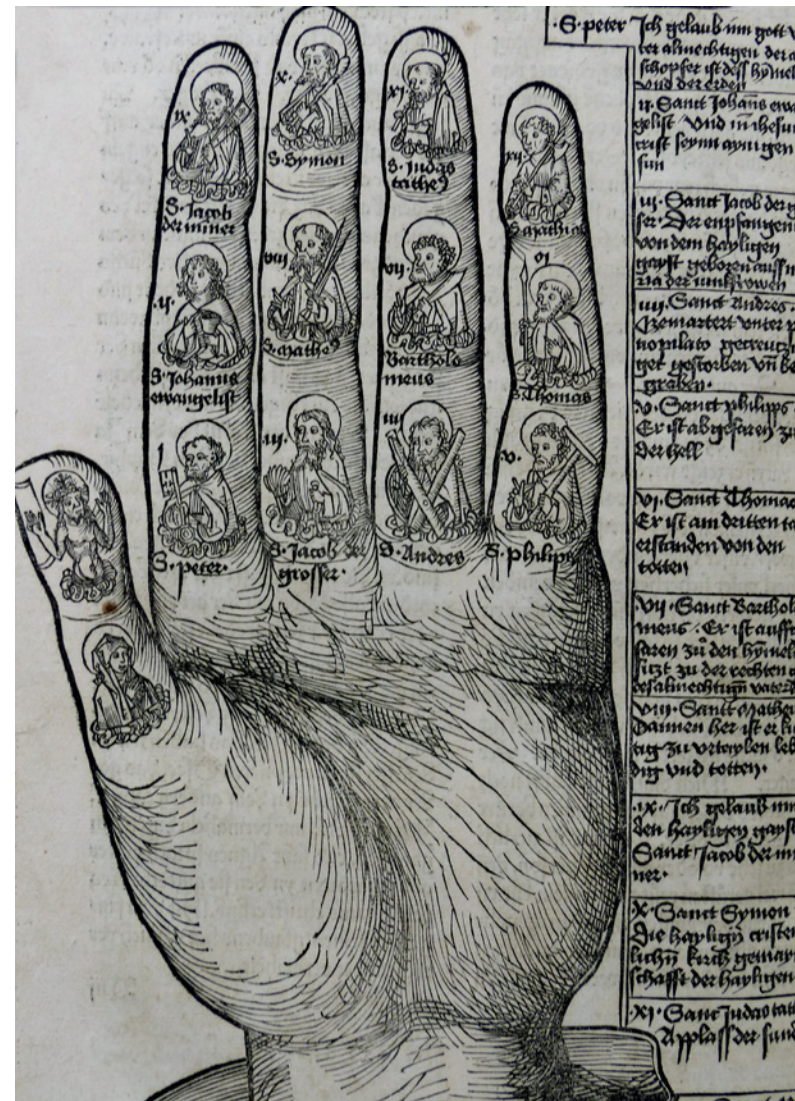 ix
S. Jacob
der miner
x.
S. Symon
xi
S. Judas
tathe9
xii
S. Mathias
ii.
S. Johanns
ewangelist
viii
S. Mathe9
vii.
Bartholo
meus
vi
S. Thomas
i
S. peter.
iii.
S. Jacob der
grosser.
iiii
S. Andres
v.
S. philipp
.S. peter
Ich gelaub inn gott
ter almechtigen der
schopfer ist deß hymel
vnd der erden
ii. Sanct Johans ewa
gelist Vnd in ihesu
crist seynn aynigen
sun
iii. Sanct Jacob der
ser. Der enpfangen
von dem hayligen
gayst geboren auß
ria der iunkfrowen
iiii. Sanct Andres.
Gemartert vnter
pilato gecreutz
get gestorben vn be
graben.
v. Sanct philipps
Er ist abgefaren zu
der hell
vi Sanct Thomas
Er ist am dritten ta
erstanden von den
totten
vii. Sanct Barthol
meus. Er ist auff
faren zů den hymel
sitzt zu der rechten
des almechtign vater
viii. Sanct Mathe
Dannen her ist er
tig zu vrteylen leb
dig vnd totten.
.ix. Ich gelaub inn
den hayligen gayst
Sanct Jacob der mi
ner.
x. Sanct Symon
Die haylign cristen
lichn kirch gemay
schafft der hayligen
.xi. Sanct Judas tat
Applass der sund